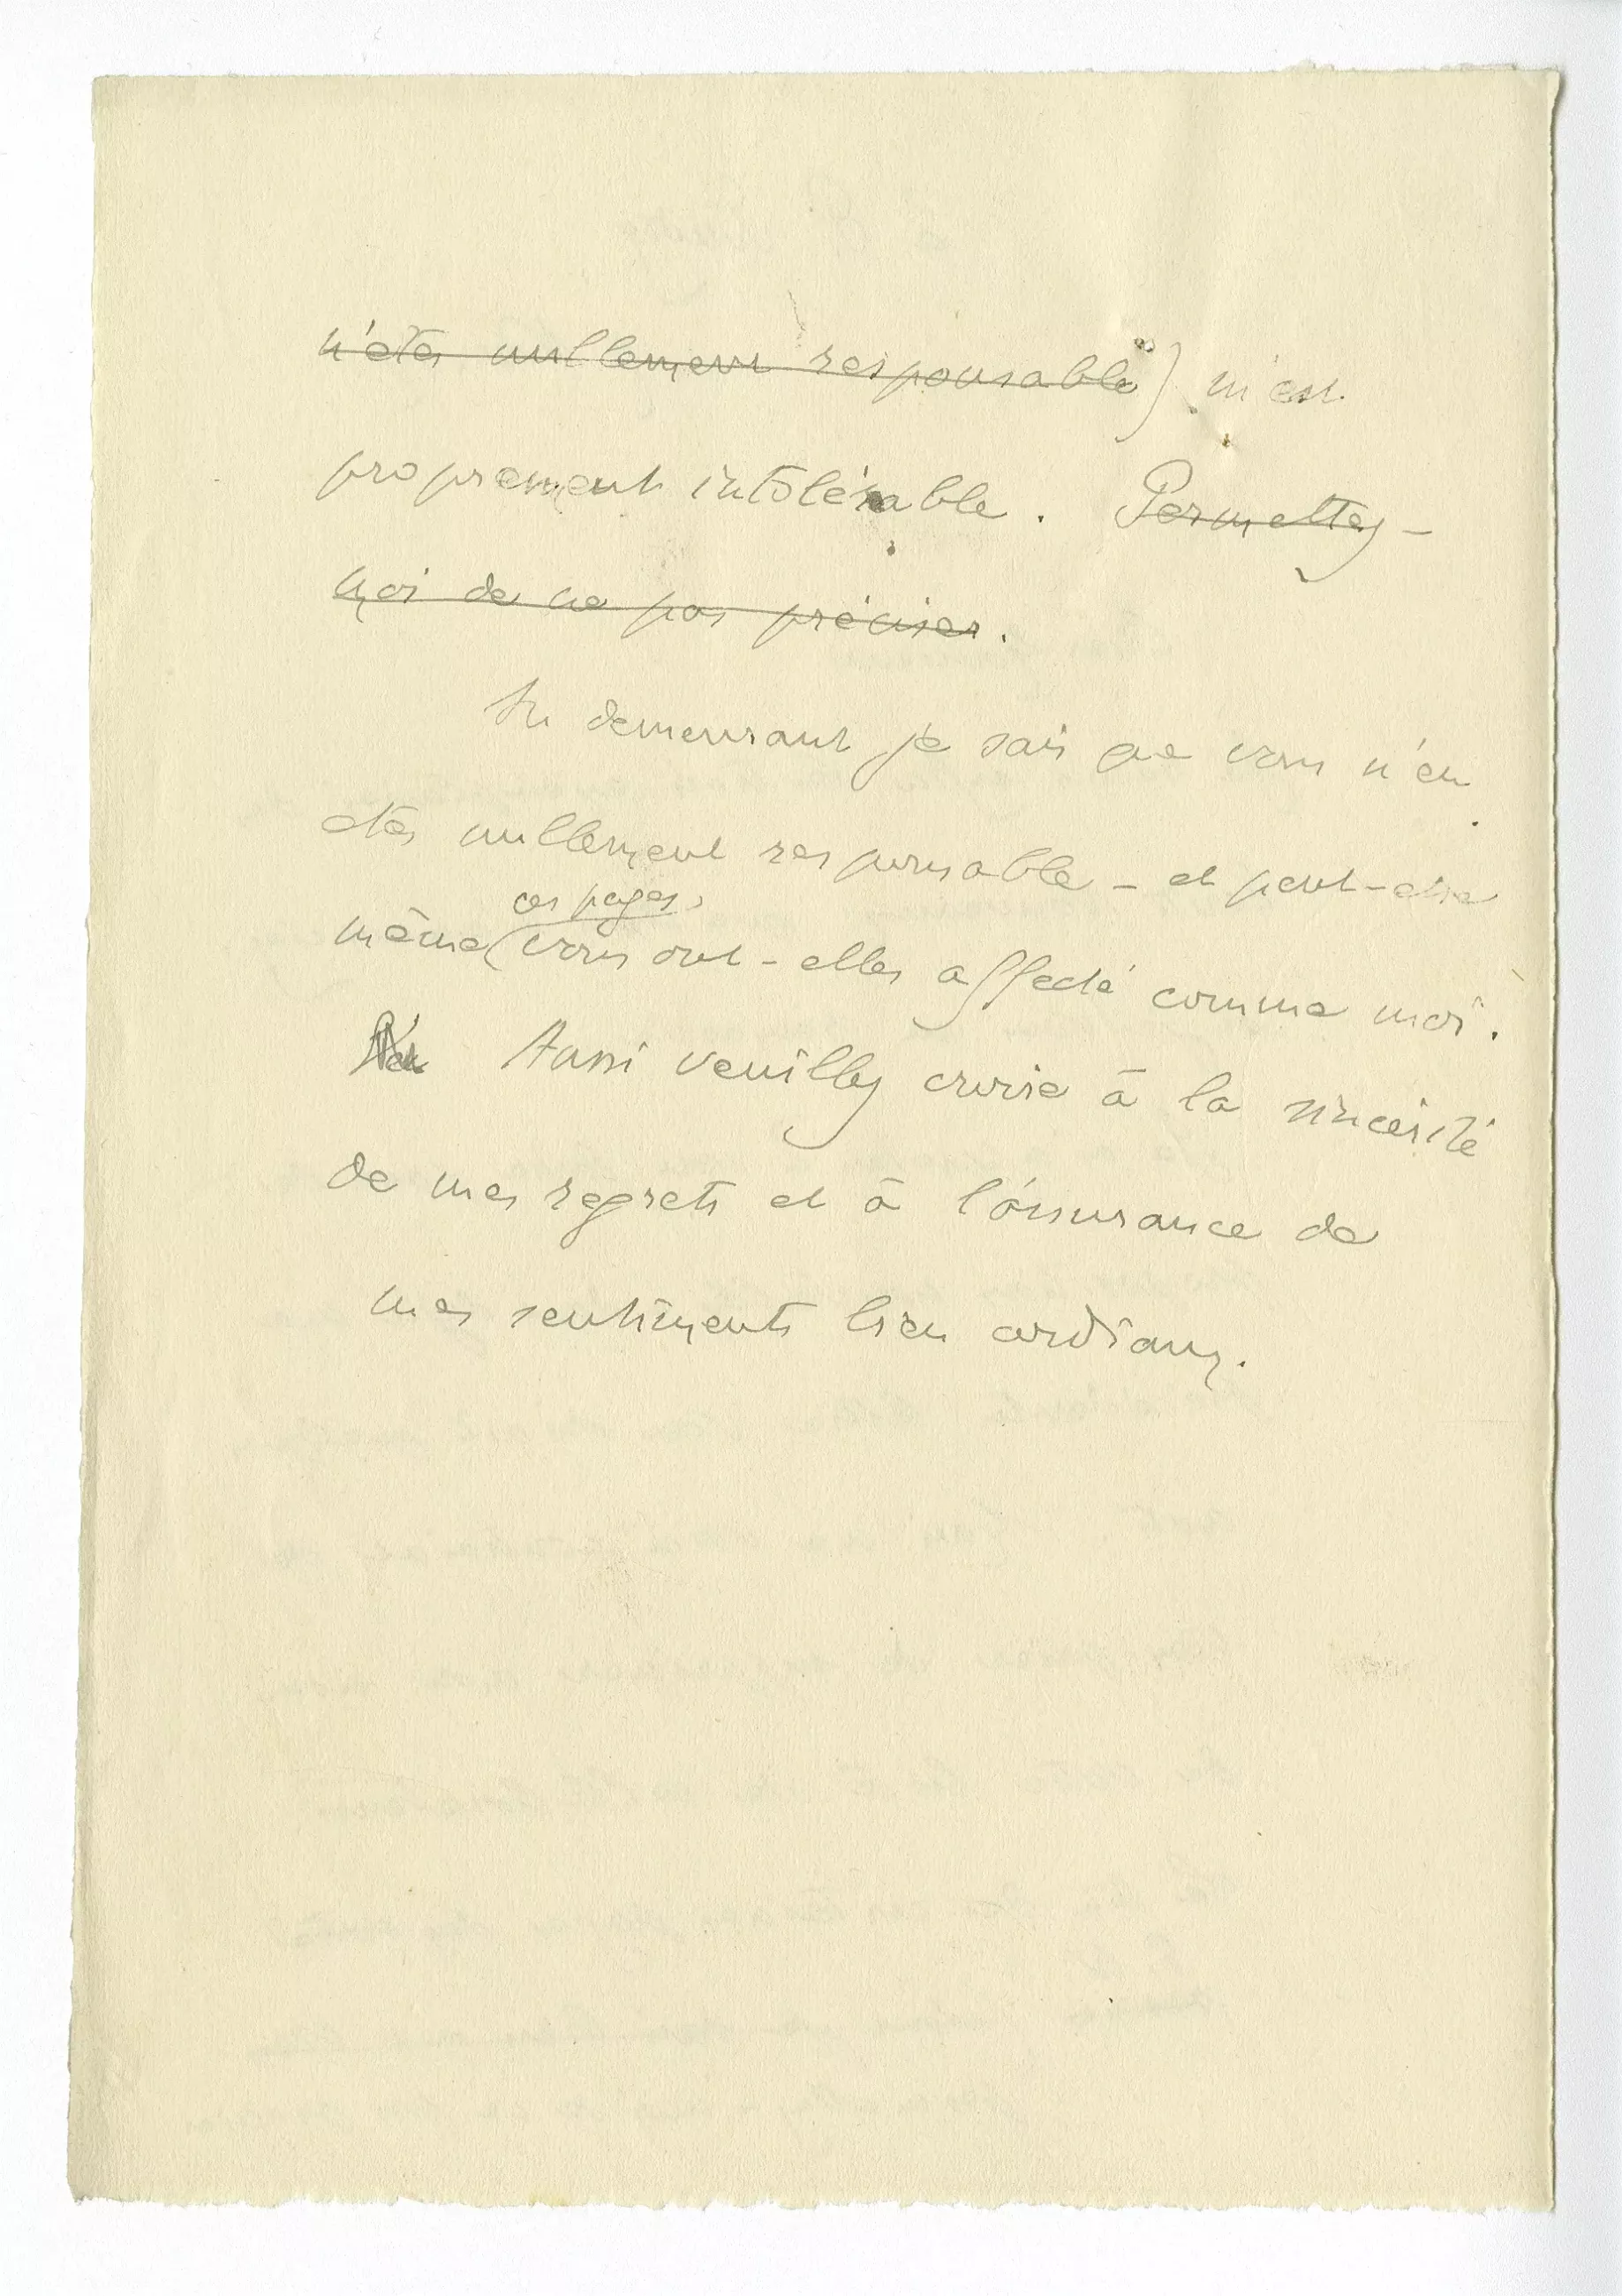 n'êtes nullement responsable) m'est
proprement intolérable. Permettez-
moi de ne pas préciser.
Au demeurant je sais que vous n'en
êtes nullement responsable - et peut-être
ces pages,
même vous ont-elles affecté comme moi.
Aussi veuillez croire à la sincérité
de mes regrets et à l'assurance de
mes sentiments bien cordiaux.